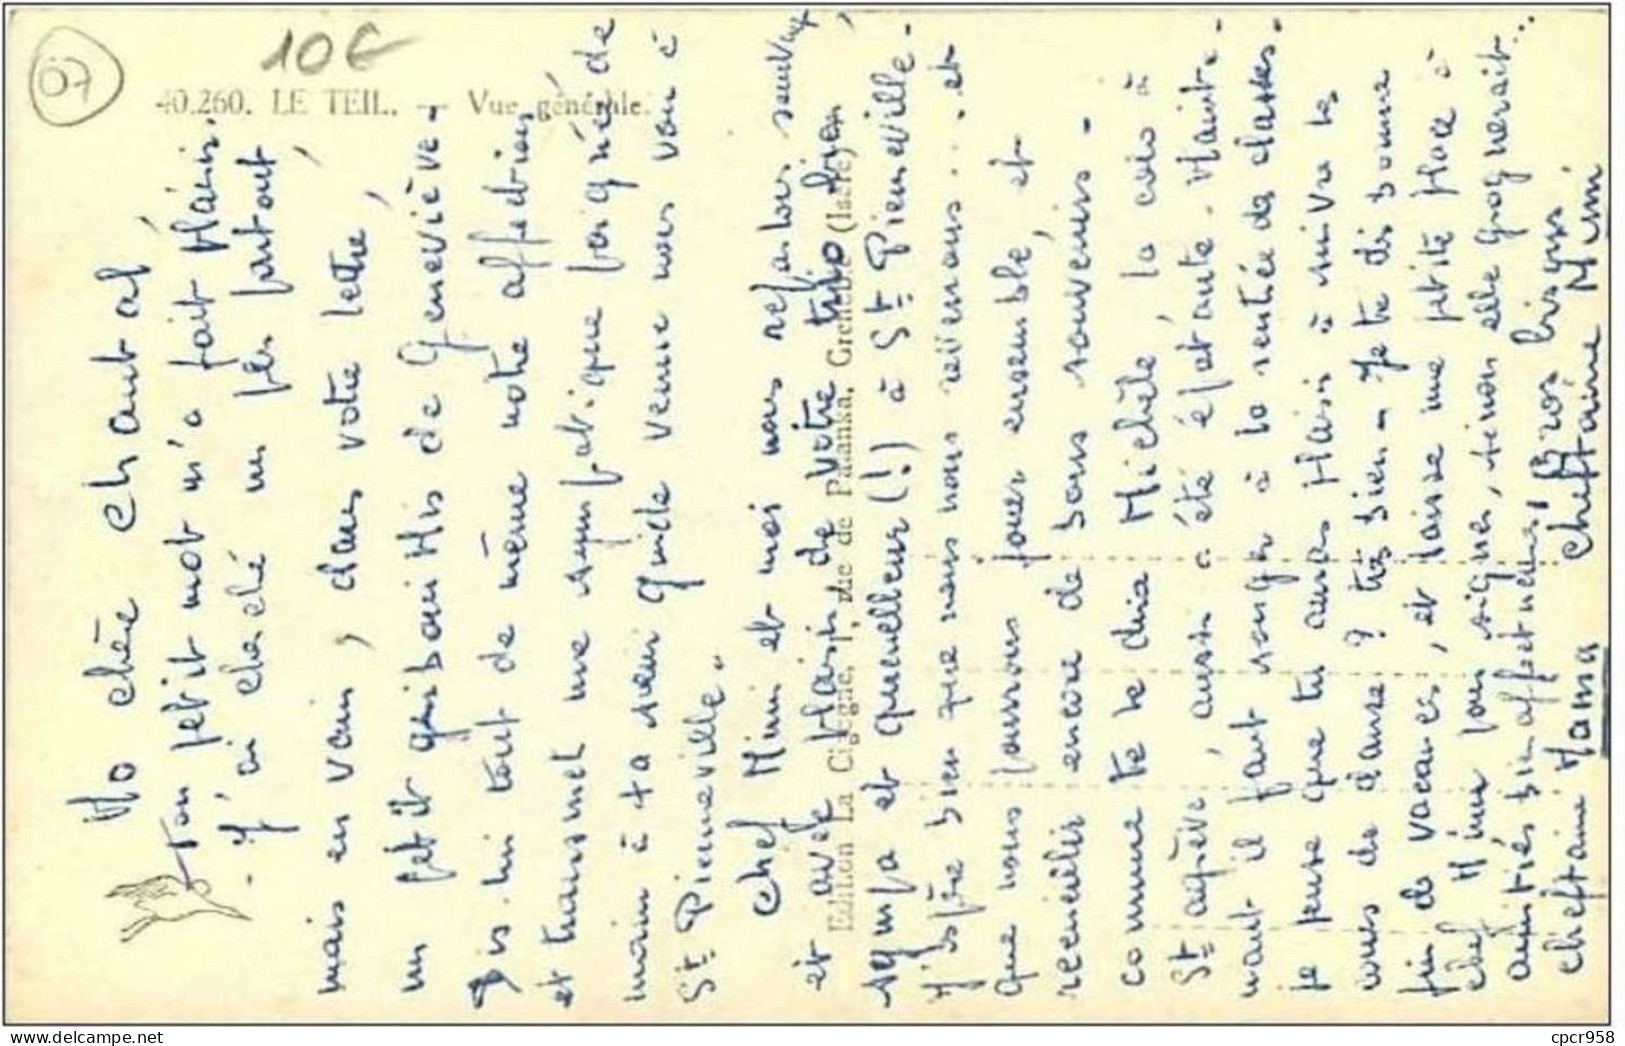 07
10€
40.260. LE TEIL. — Vue générale.
Ma chère Chantal
Ton petit mot m'a fait plaisir.
- J'ai cherché un peu partout,
mais en vain, dans votre lettre,
un petit gribouillis de Geneviève -
Dis-lui tout de même notre affection,
et transmet une sympathique poignée de
main à ta sœur Guide venue nous voir à
St Pierreville.
Chef Mimi et moi nous reparlons souvent
et avec plaisir de votre trio bien
sympa et querelleur (!) à St Pierreville.
J'espère bien que nous nous reverrons... et
que nous pourrons jouer ensemble, et
recueillir encore de bons souvenirs -
comme te le dira Michèle, la
St Agrève, aussi a été épatante. Mainte-
nant il faut songer à la rentrée des classes.
je pense que tu auras plaisir à suivre tes
cours de danse ? très bien - Je te dis bonne
fin de vacances, et laisse une petite place à
chef Mimi pour signer, sinon elle grognerait...
amitiés bien affectueuses, gros bisous
cheftaine Mama cheftaine Mimi
Edition La Cigogne, 1, rue de Palanka, Grenoble (Isère)
cpcr958